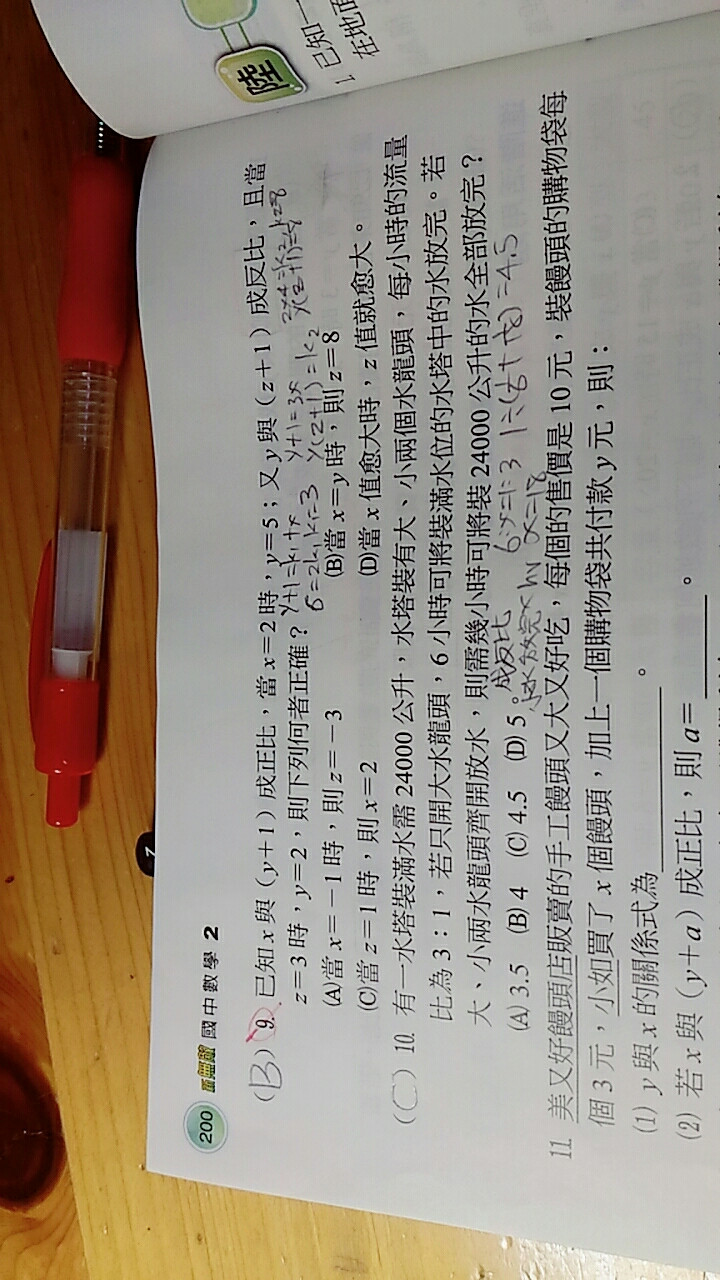 200 國中數學 2
(B) 9. 已知 x 與 (y+1) 成正比，當 x=2 時，y=5；又 y 與 (z+1) 成反比，且當
z=3 時，y=2，則下列何者正確？
y+1=k₁x
6=2k₁ k₁=3
y+1=3x
y(z+1)=k₂
2×4=k₂ k=8
y(z+1)=8
(A)當 x=－1 時，則 z=－3 (B)當 x=y 時，則 z=8
(C)當 z=1 時，則 x=2 (D)當 x 值愈大時，z 值就愈大。
(C) 10. 有一水塔裝滿水需 24000 公升，水塔裝有大、小兩個水龍頭，每小時的流量
比為 3：1，若只開大水龍頭，6 小時可將裝滿水位的水塔中的水放完。若
大、小兩水龍頭齊開放水，則需幾小時可將裝 24000 公升的水全部放完？
(A) 3.5 (B) 4 (C) 4.5 (D) 5。
成反比
放完x hr
6:x=1:3
x=18
1÷(1/6+1/18)=4.5
11. 美又好饅頭店販賣的手工饅頭又大又好吃，每個的售價是 10 元，裝饅頭的購物袋每
個 3 元，小如買了 x 個饅頭，加上一個購物袋共付款 y 元，則：
(1) y 與 x 的關係式為　　　　。
(2) 若 x 與 (y+a) 成正比，則 a=　　　　。
陸
1. 已知一
在地面